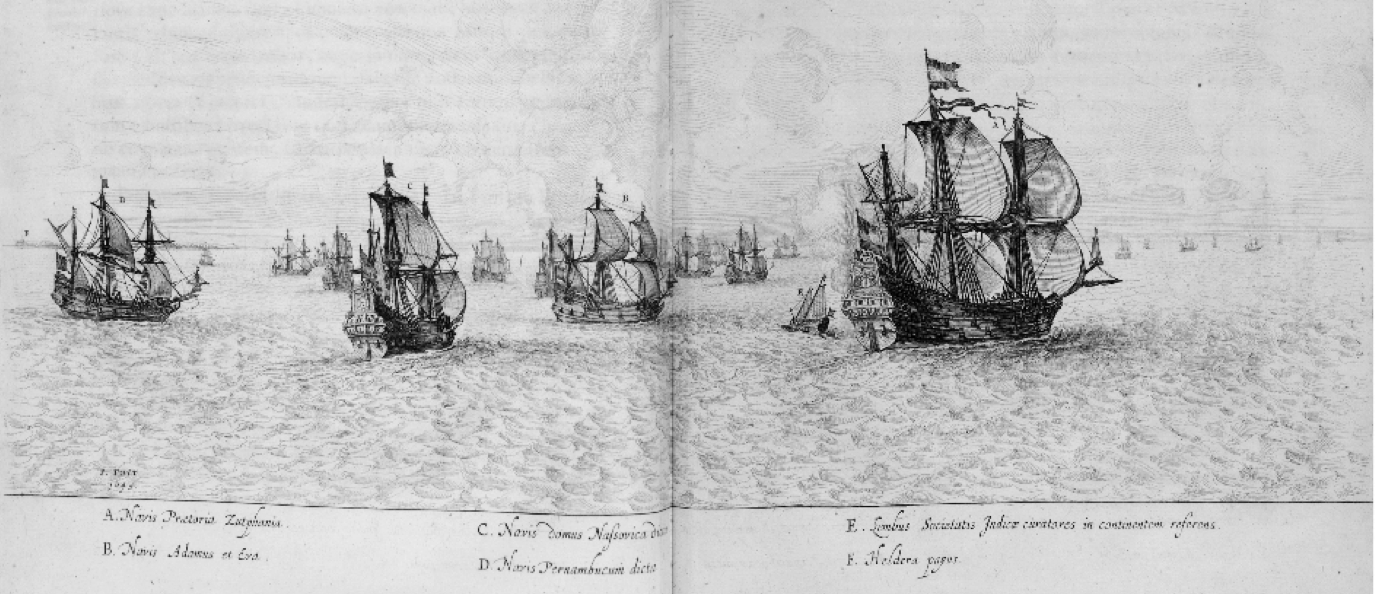 F. POST
1645
A. Navis Prætoria Zutphania.
B. Navis Adamus et Eva.
C. Navis domus Nassovica dicta
D. Navis Pernambucum dicta
E. Lembus Societatis Indicæ curatores in continentem referens.
F. Heldera pagus.
B
C
D
E
F